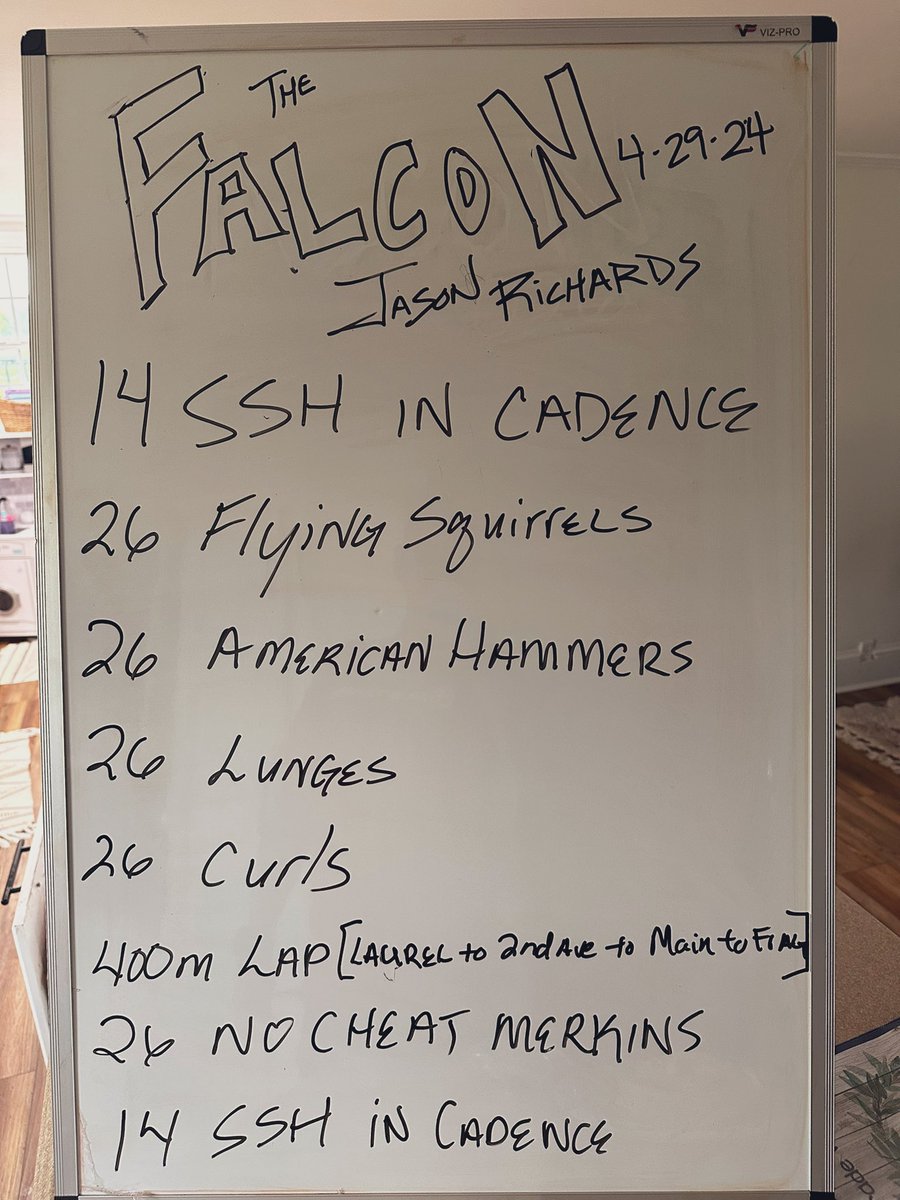 VIZ-PRO
THE
FALCON 4.29.24
JASON RICHARDS
14 SSH IN CADENCE
26 Flying Squirrels
26 AMERICAN HAMMERS
26 LUNGES
26 Curls
400m LAP [LAUREL to 2nd AVE to Main to FLAG]
26 NO CHEAT MERKINS
14 SSH iN CADENCE